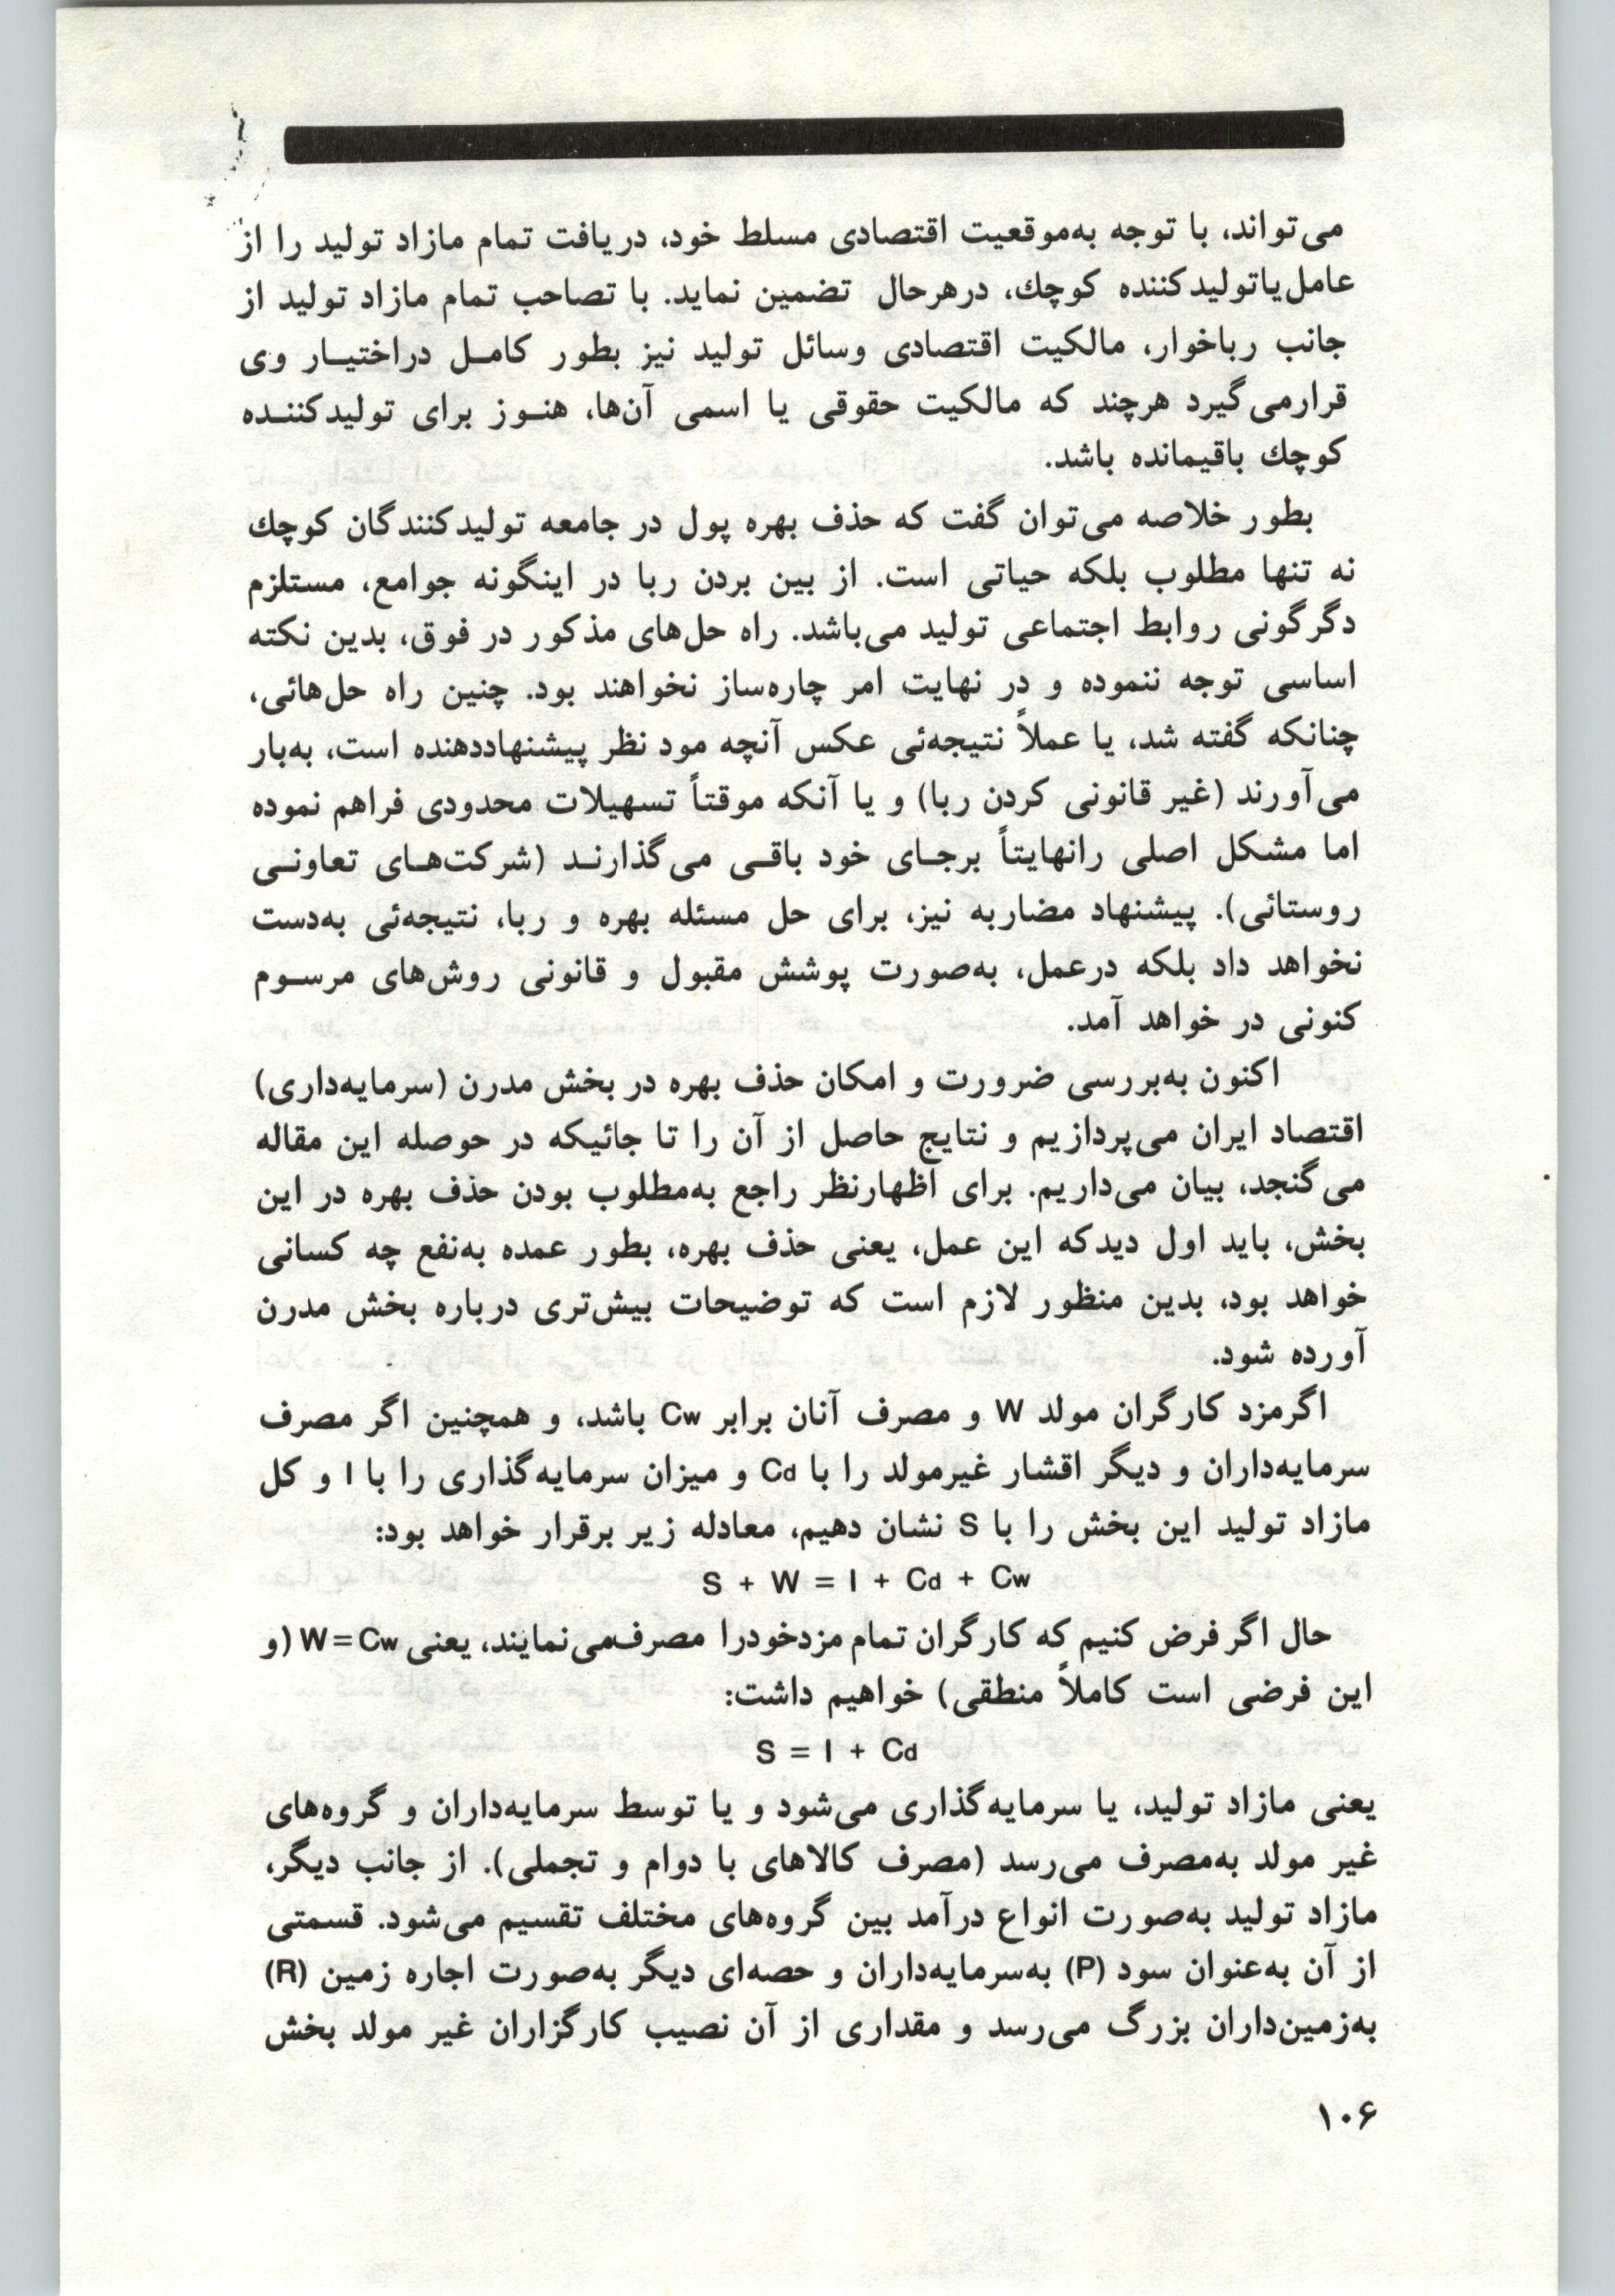 می‌تواند، با توجه به‌موقعیت اقتصادی مسلط خود، دریافت تمام مازاد تولید را از
عامل‌یا‌تولیدکننده کوچك، درهرحال تضمین نماید. با تصاحب تمام مازاد تولید از
جانب رباخوار، مالکیت اقتصادی وسائل تولید نیز بطور کامـل دراختیـار وی
قرارمی‌گیرد هرچند که مالکیت حقوقی یا اسمی آن‌ها، هنـوز برای تولیدکننـده
کوچك باقیمانده باشد.
بطور خلاصه می‌توان گفت که حذف بهره پول در جامعه تولیدکنندگان کوچك
نه تنها مطلوب بلکه حیاتی است. از بین بردن ربا در اینگونه جوامع، مستلزم
دگرگونی روابط اجتماعی تولید می‌باشد. راه حل‌های مذکور در فوق، بدین نکته
اساسی توجه ننموده و در نهایت امر چاره‌ساز نخواهند بود. چنین راه حل‌هائی،
چنانکه گفته شد، یا عملاً نتیجه‌ئی عکس آنچه مود نظر پیشنهاددهنده است، به‌بار
می‌آورند (غیر قانونی کردن ربا) و یا آنکه موقتاً تسهیلات محدودی فراهم نموده
اما مشکل اصلی رانهایتاً برجـای خود باقـی می‌گذارنـد (شرکت‌هـای تعاونـی
روستائی). پیشنهاد مضاربه نیز، برای حل مسئله بهره و ربا، نتیجه‌ئی به‌دست
نخواهد داد بلکه درعمل، به‌صورت پوشش مقبول و قانونی روش‌های مرسـوم
کنونی در خواهد آمد.
اکنون به‌بررسی ضرورت و امکان حذف بهره در بخش مدرن (سرمایه‌داری)
اقتصاد ایران می‌پردازیم و نتایج حاصل از آن را تا جائیکه در حوصله این مقاله
می‌گنجد، بیان می‌داریم. برای اظهارنظر راجع به‌مطلوب بودن حذف بهره در این
بخش، باید اول دیدکه این عمل، یعنی حذف بهره، بطور عمده به‌نفع چه کسانی
خواهد بود، بدین منظور لازم است که توضیحات بیش‌تری درباره بخش مدرن
آورده شود.
اگرمزد کارگران مولد W و مصرف آنان برابر Cw باشد، و همچنین اگر مصرف
سرمایه‌داران و دیگر اقشار غیرمولد را با Cd و میزان سرمایه‌گذاری را با I و کل
مازاد تولید این بخش را با S نشان دهیم، معادله زیر برقرار خواهد بود:
S + W = I + Cd + Cw
حال اگر فرض کنیم که کارگران تمام مزدخودرا مصرف‌می‌نمایند، یعنی W=Cw (و
این فرضی است کاملاً منطقی) خواهیم داشت:
S = I + Cd
یعنی مازاد تولید، یا سرمایه‌گذاری می‌شود و یا توسط سرمایه‌داران و گروه‌های
غیر مولد به‌مصرف می‌رسد (مصرف کالاهای با دوام و تجملی). از جانب دیگر،
مازاد تولید به‌صورت انواع درآمد بین گروه‌های مختلف تقسیم می‌شود. قسمتی
از آن به‌عنوان سود (P) به‌سرمایه‌داران و حصه‌ای دیگر به‌صورت اجاره زمین (R)
به‌زمین‌داران بزرگ می‌رسد و مقداری از آن نصیب کارگزاران غیر مولد بخش
۱۰۶